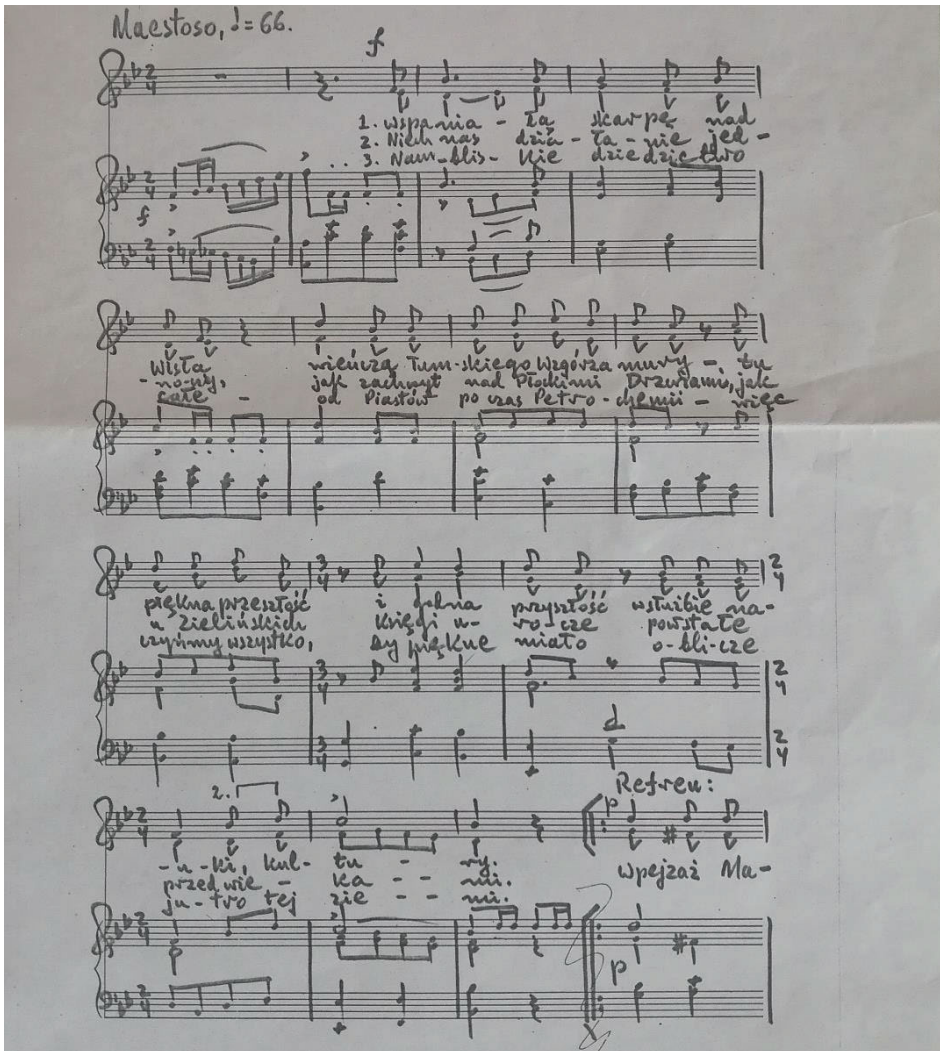 Maestoso, ♩=66.
f
2/4
1. Wspania - łą skarpę nad
2. Niech nas dzia - ła - nie jed -
3. Nam - blis - kie dziedzictwo
2/4
f
2/4
Wisłą wieńczą Tum - skiego Wzgórza mury -, tu
- no - czy, jak zachwyt nad Płockimi Drzwiami, jak
całe - od Piastów po czas Petro - chemii - więc
piękna przeszłość i pełna przyszłość wsłużbie na -
u Zielińskich Księgi u - ro - cze powstałe
czyńmy wszystko, by piękne miało o - bli - cze
3/4 2/4
3/4 2/4
3/4 2/4
Refren:
2.
p
2/4
- u - ki, kul - tu - ry. wpejzaż Ma -
przed wie - ka - - mi.
ju - tro tej zie - - mi.
2/4
p
2/4